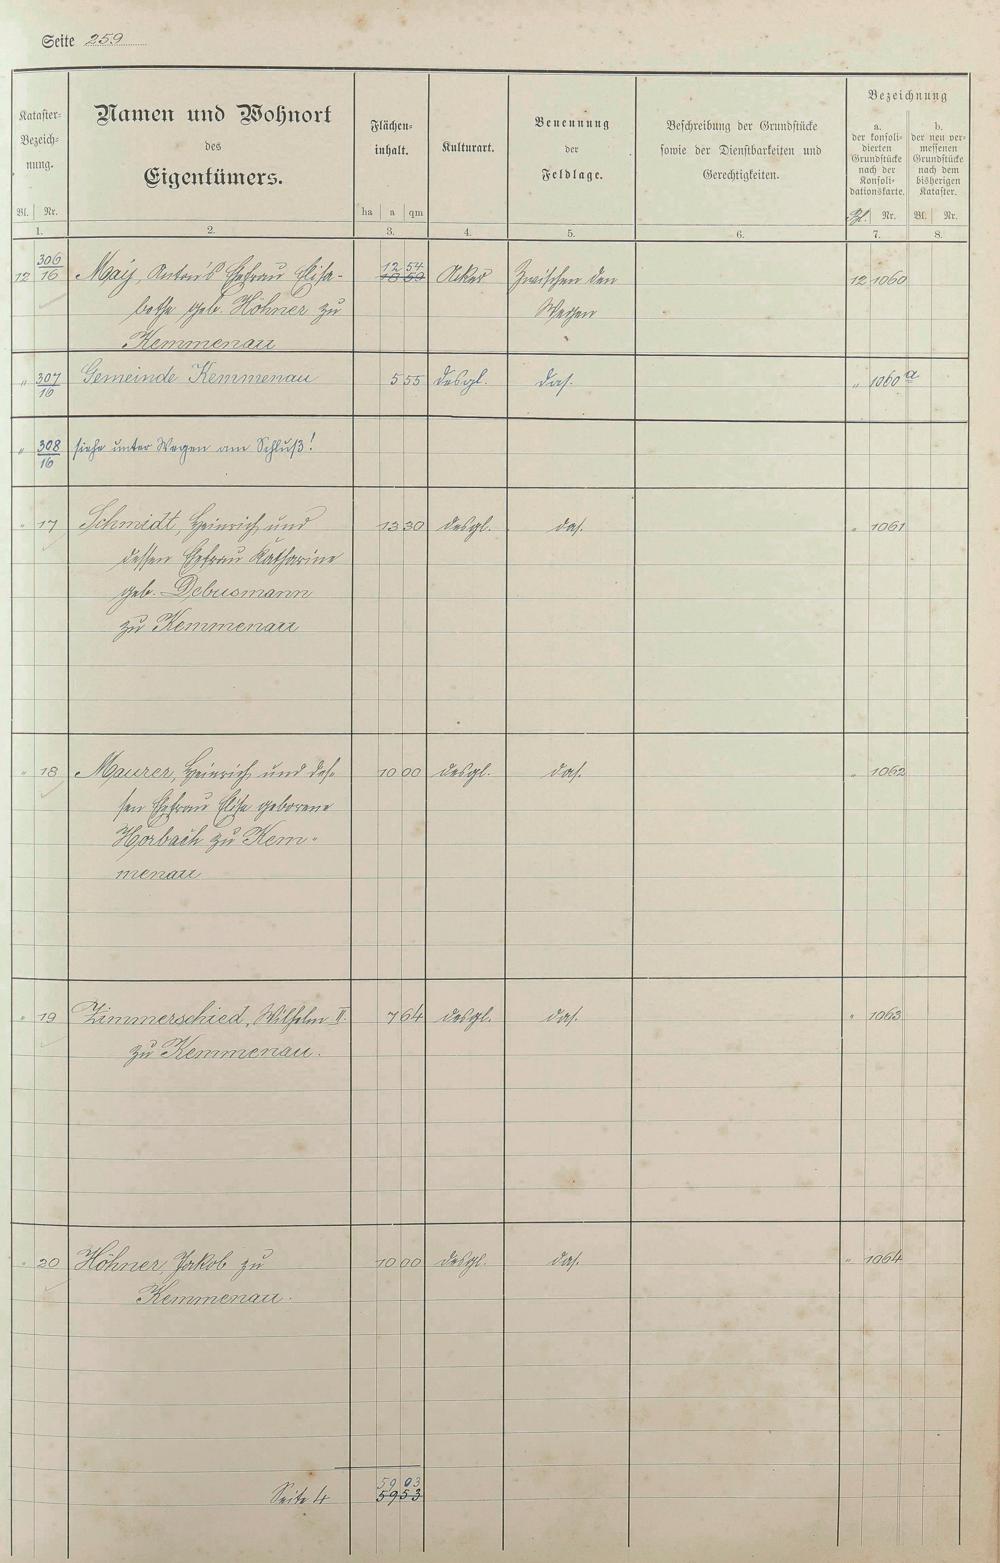 Seite 259
Kataster-Bezeich-nung.
Namen und Wohnort
des
Eigentümers.
Flächen-inhalt.
Kulturart.
Benennung
der
Feldlage.
Beschreibung der Grundstücke
sowie der Dienstbarkeiten und
Gerechtigkeiten.
Bezeichnung
a. der konsoli-dierten Grundstücke nach der Konsoli-dationskarte.
b. der neu ver-messenen Grundstücke nach dem bisherigen Kataster.
Bl. Nr. ha a qm Bl. Nr. Bl. Nr.
1. 2. 3. 4. 5. 6. 7. 8.
12 54
12 306/16 May, Anton's Ehefrau Elisa- Acker Zwischen den 12 1060
bethe geb. Höhner zu Wegen
Kemmenau
" 307/16 Gemeinde Kemmenau 5 55 desgl. das. " 1060a
" 308/16 siehe unter Wegen am Schluß!
" 17 Schmidt, Heinrich und 13 30 desgl. das. " 1061
dessen Ehefrau Katharine
geb. Debusmann
zu Kemmenau
" 18 Maurer, Heinrich und des- 10 00 desgl. das. " 1062
sen Ehefrau Elise geborene
Horbach zu Kem-
menau
" 19 Zimmerschied, Wilhelm II. 7 64 desgl. das. " 1063
zu Kemmenau.
" 20 Höhner, Jakob zu 10 00 desgl. das. " 1064
Kemmenau.
59 03
Seite 4 59 53